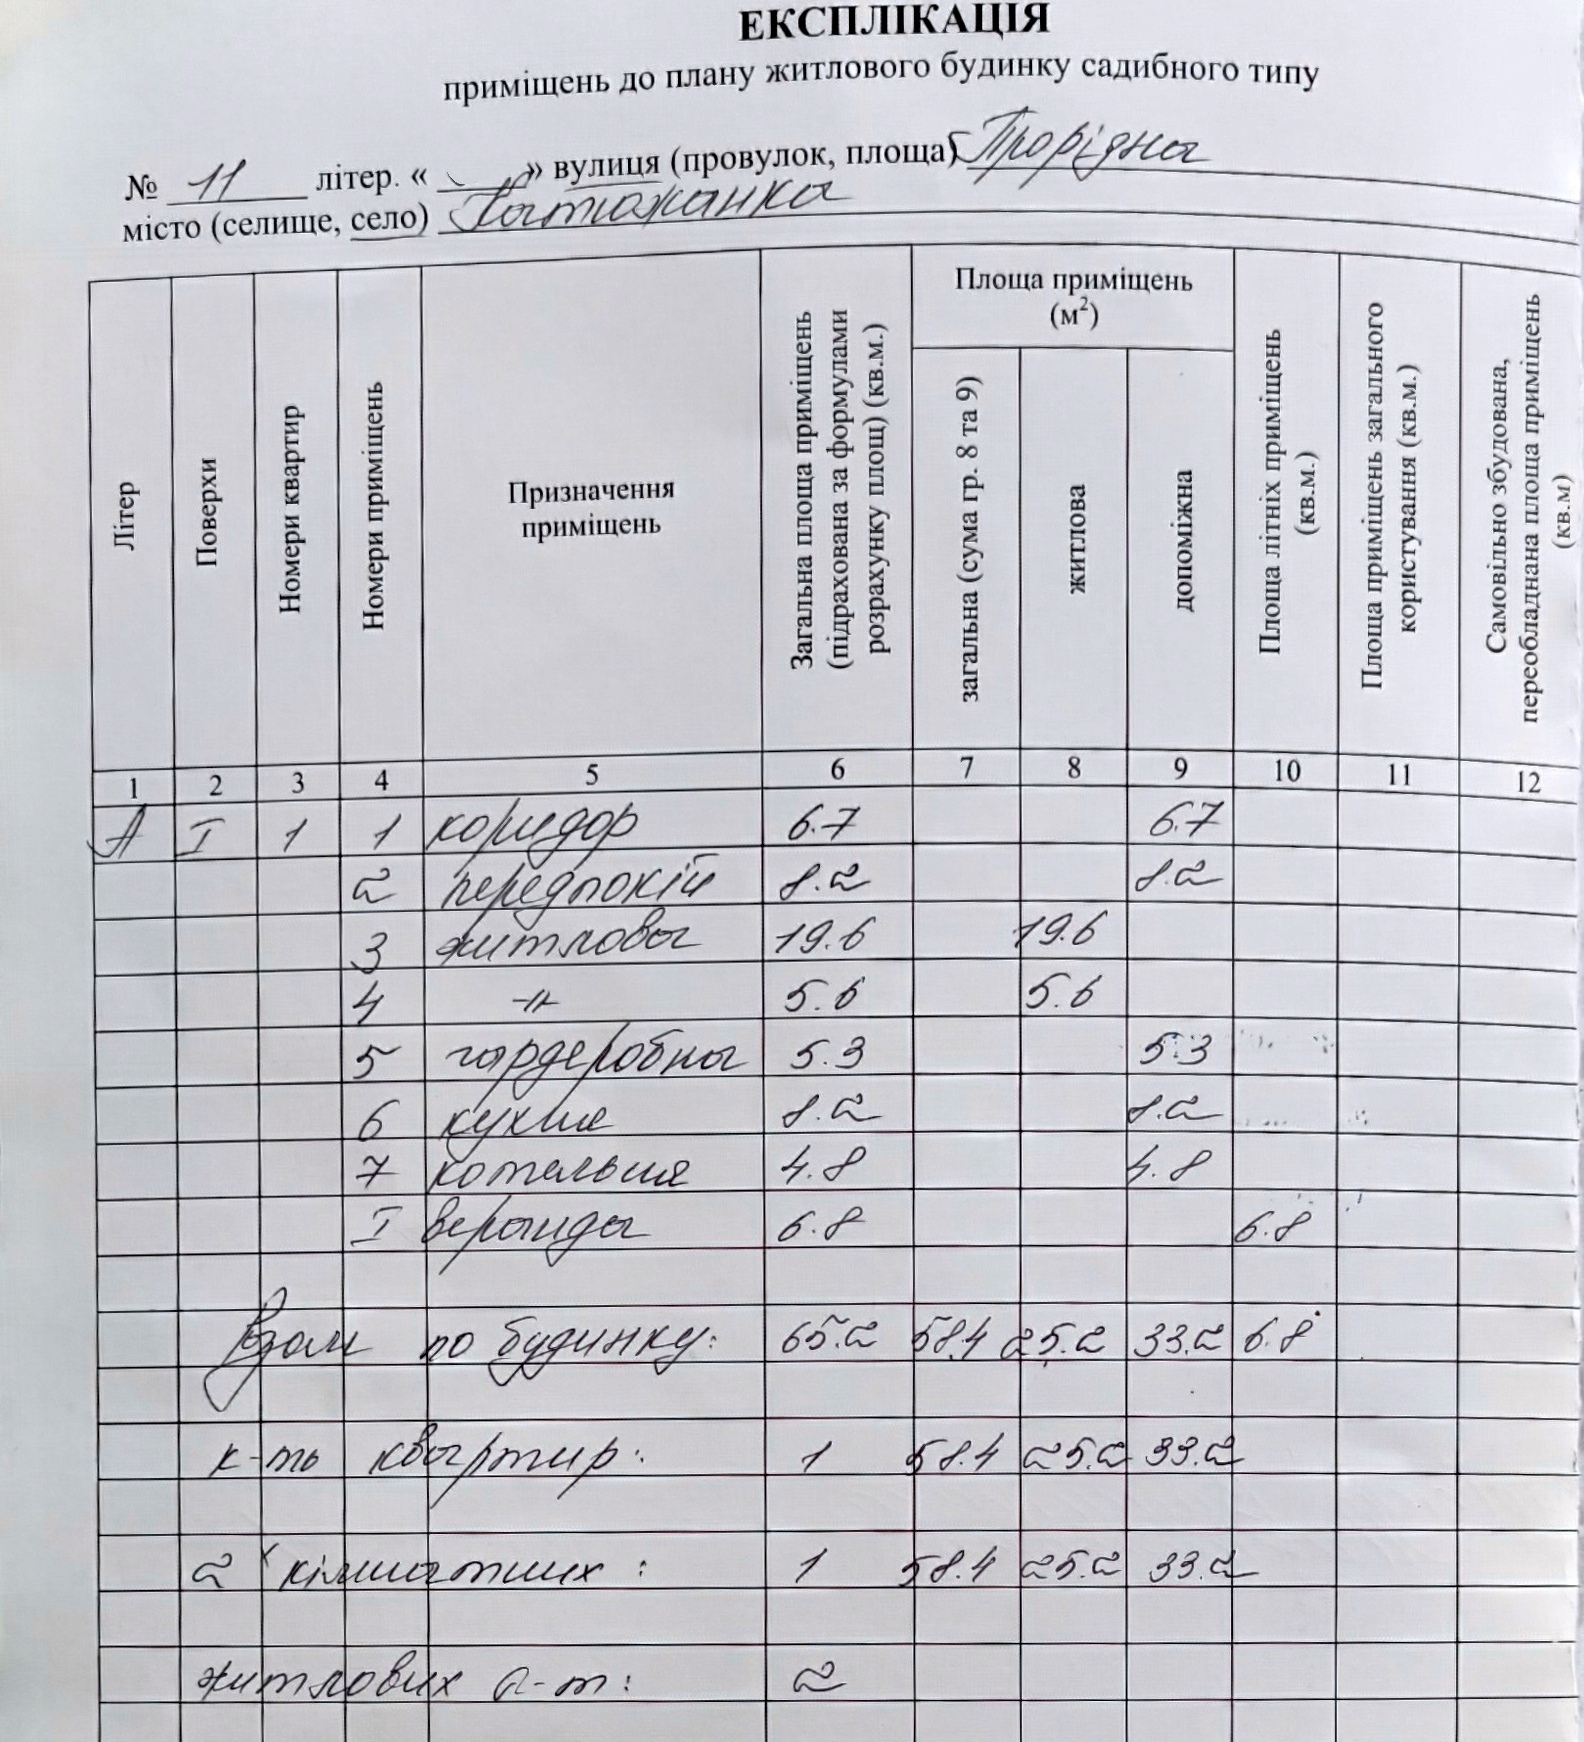 ЕКСПЛІКАЦІЯ
приміщень до плану житлового будинку садибного типу
№ 11 літер. « » вулиця (провулок, площа) Прорідна
місто (селище, село) Катюжанка
Літер
Поверхи
Номери квартир
Номери приміщень
Призначення
приміщень
Загальна площа приміщень
(підрахована за формулами
розрахунку площ) (кв.м.)
Площа приміщень
(м²)
загальна (сума гр. 8 та 9)
житлова
допоміжна
Площа літніх приміщень
(кв.м.)
Площа приміщень загального
користування (кв.м.)
Самовільно збудована,
переобладнана площа приміщень
(кв.м)
1 2 3 4 5 6 7 8 9 10 11 12
А І 1 1 коридор 6.7 6.7
2 передпокій 8.2 8.2
3 житлова 19.6 19.6
4 -//- 5.6 5.6
5 гардеробна 5.3 5.3
6 кухня 8.2 8.2
7 котельня 4.8 4.8
І веранда 6.8 6.8
Разом по будинку: 65.2 58.4 25.2 33.2 6.8
к-ть квартир: 1 58.4 25.2 33.2
2 х кімнатних : 1 58.4 25.2 33.2
житлових : 2